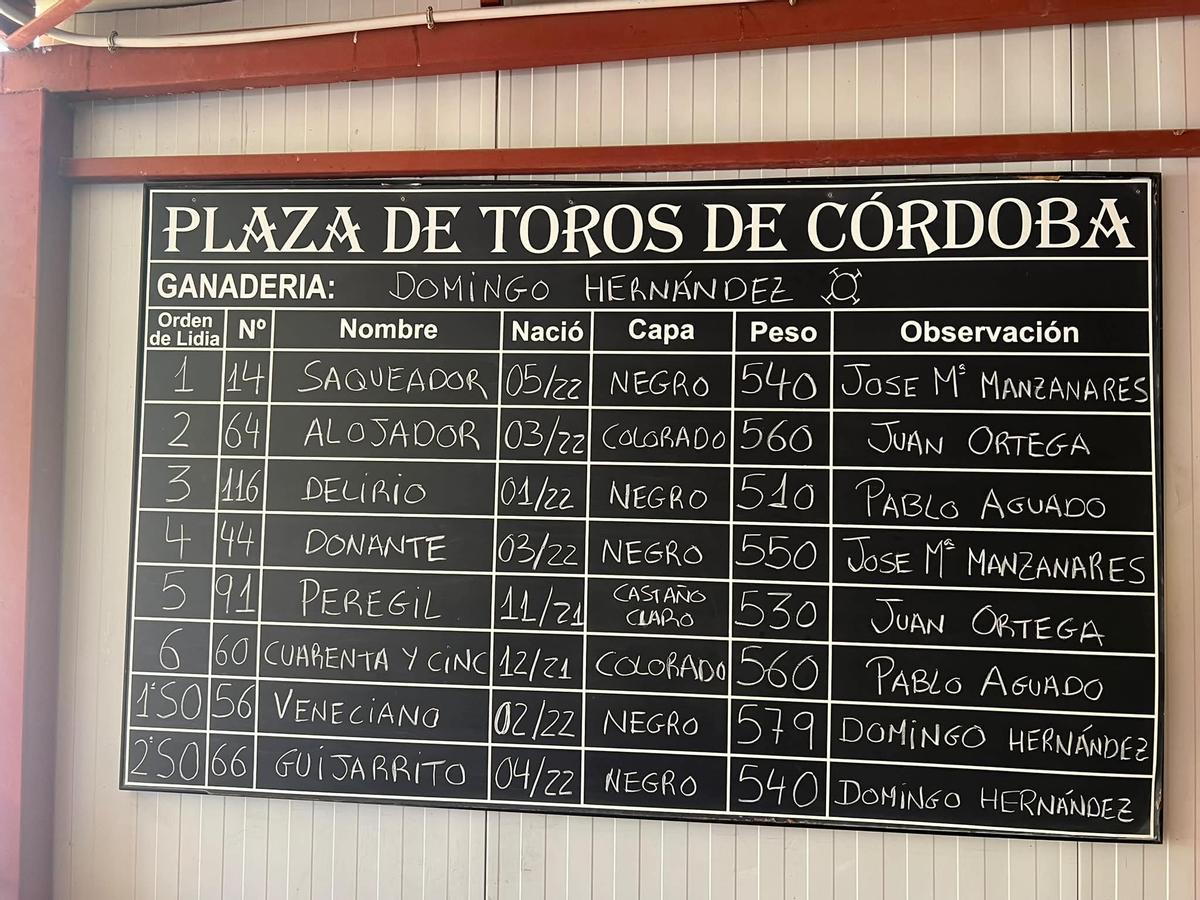 PLAZA DE TOROS DE CÓRDOBA
GANADERIA: DOMINGO HERNÁNDEZ
Orden de Lidia Nº Nombre Nació Capa Peso Observación
1 14 SAQUEADOR 05/22 NEGRO 540 JOSE Mª MANZANARES
2 64 ALOJADOR 03/22 COLORADO 560 JUAN ORTEGA
3 116 DELIRIO 01/22 NEGRO 510 PABLO AGUADO
4 44 DONANTE 03/22 NEGRO 550 JOSE Mª MANZANARES
5 91 PEREGIL 11/21 CASTAÑO CLARO 530 JUAN ORTEGA
6 60 CUARENTA Y CINC 12/21 COLORADO 560 PABLO AGUADO
1ºSO 56 VENECIANO 02/22 NEGRO 579 DOMINGO HERNÁNDEZ
2ºSO 66 GUIJARRITO 04/22 NEGRO 540 DOMINGO HERNÁNDEZ